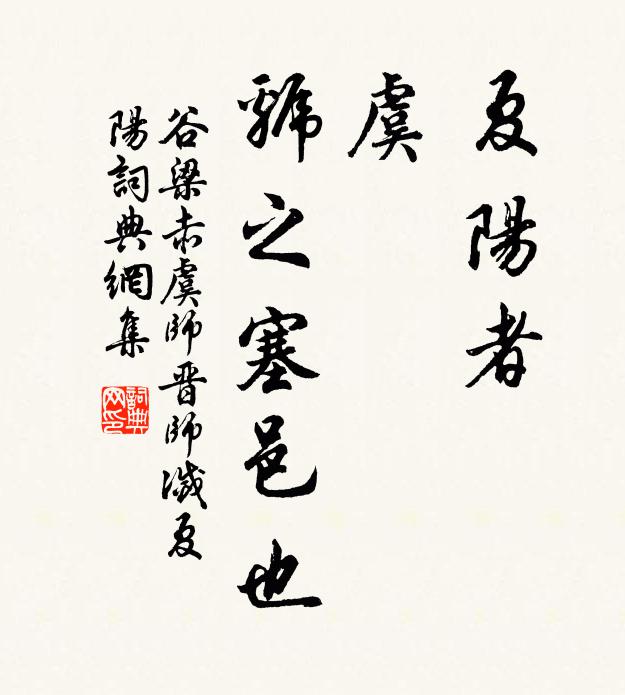 夏陽者
虞
虢之塞邑也
谷梁赤虞師晋師滅夏
陽詞典網集
詞典網印